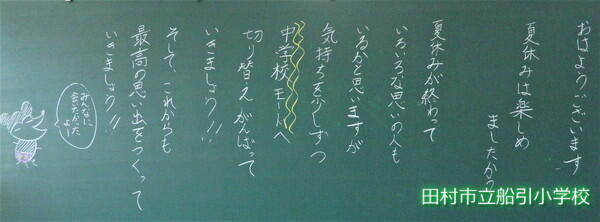 おはようございます
夏休みは楽しめ
ましたか?
夏休みが終わって
いろいろな思いの人も
いるかと思いますが
気持ちを少しずつ
中学校モードへ
切り替えがんばって
いきましょう!!
そして、これからも
最高の思い出をつくって
いきましょう!!
みんなに
会いたかった
よー
田村市立船引小学校